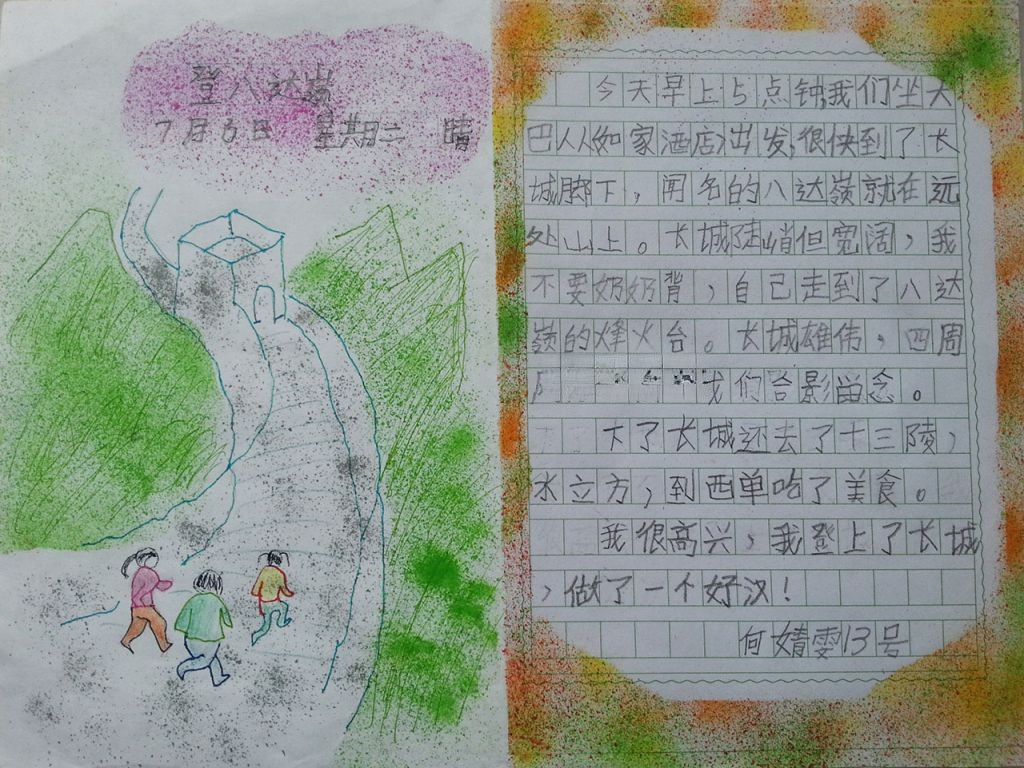 登八达岭
7月6日 星期二 晴
今天早上5点钟,我们坐大
巴从如家酒店出发,很快到了长
城脚下,闻名的八达岭就在远
处山上。长城陡峭但宽阔,我
不要奶奶背,自己走到了八达
岭的烽火台。长城雄伟,四周
我们合影留念。
下了长城还去了十三陵,
水立方,到西单吃了美食。
我很高兴,我登上了长城
,做了一个好汉!
何婧雯13号